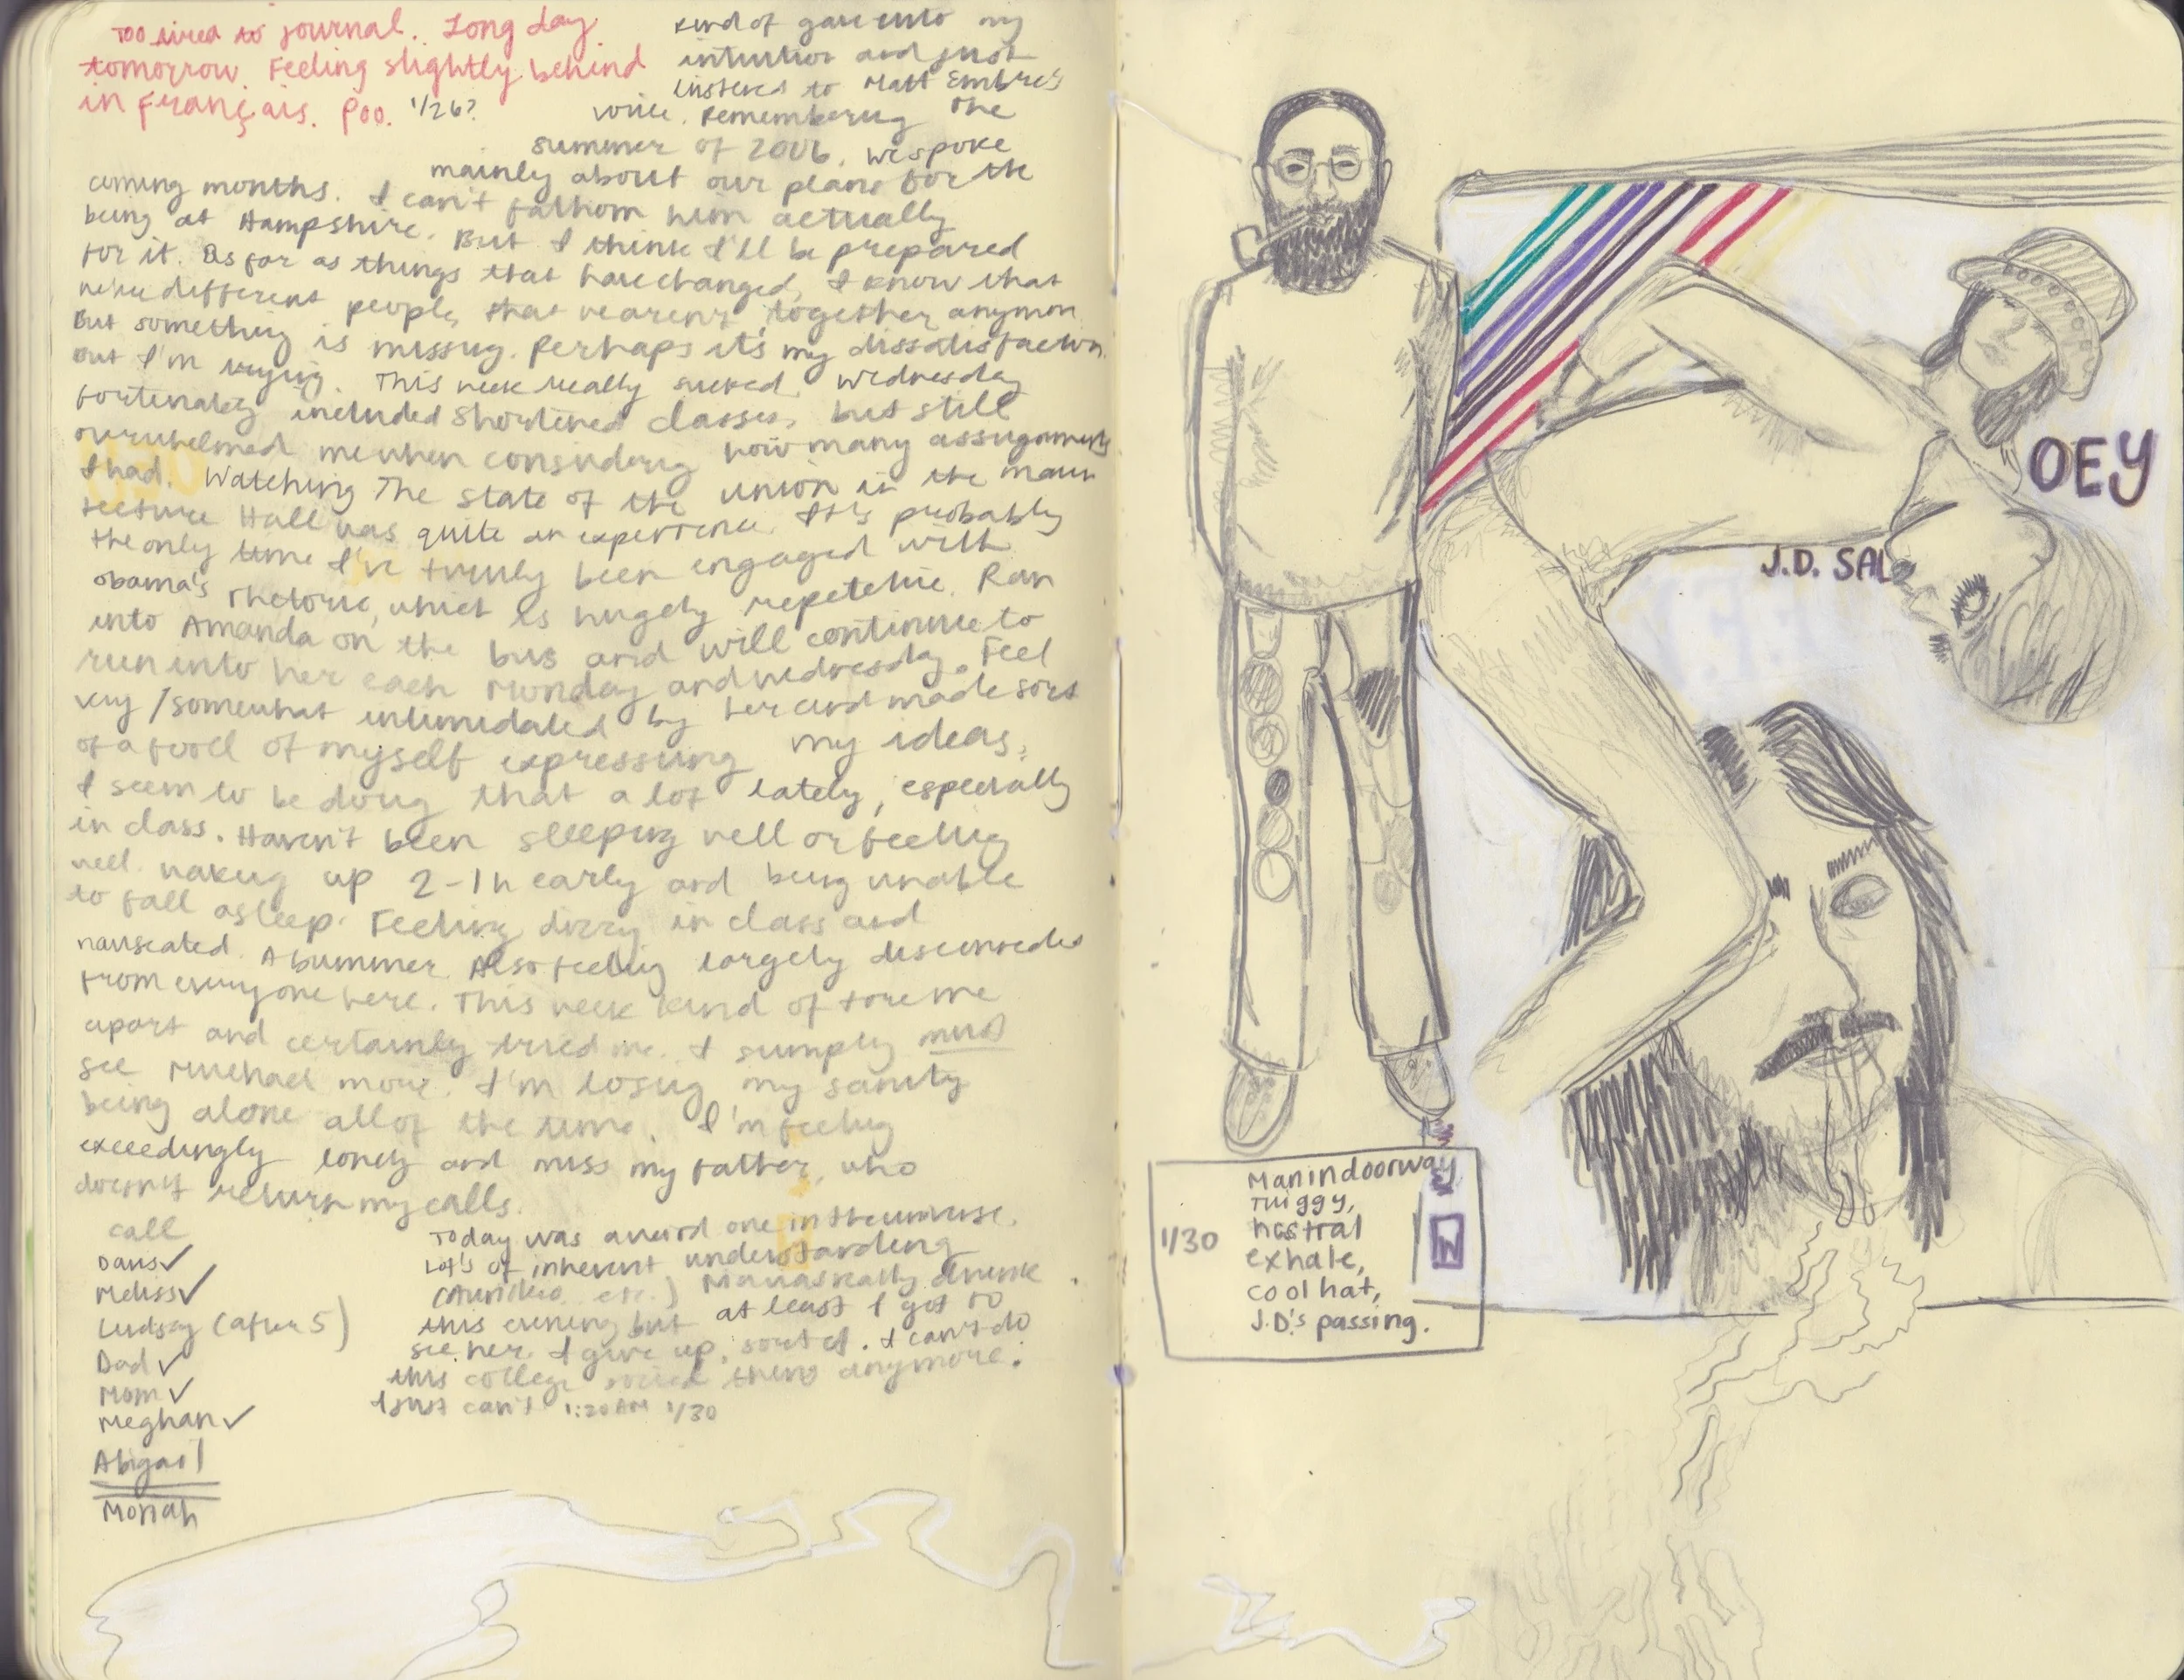 Too tired to journal. Long day
tomorrow. Feeling slightly behind
in Français. Poo. 1/26?
kind of gave into my
intuition and just
listened to Matt Embre's
voice. Remembering the
summer of 2006. We spoke
mainly about our plans for the
coming months. I can't fathom him actually
being at Hampshire. But I think I'll be prepared
for it. As far as things that have changed, I know that
we're different people, that we aren't together anymore
But something is missing. Perhaps it's my dissatisfaction.
But I'm trying. This week really sucked. Wednesday
fortunately included shortened classes, but still
overwhelmed me when considering how many assignments
I had. Watching The State of the Union in the main
lecture Hall was quite an experience. It's probably
the only time I've truly been engaged with
Obama's rhetoric, which is hugely repetetive. Ran
into Amanda on the bus and will continue to
run into her each Monday and Wednesday. Feel
very/somewhat intimidated by her and made sort
of a fool of myself expressing my ideas.
I seem to be doing that a lot lately, especially
in class. Haven't been sleeping well or feeling
well. Waking up 2-1h early and being unable
to fall asleep. Feeling dizzy in class and
nauseated. A bummer. Also feeling largely disconnected
from everyone here. This week kind of tore me
apart and certainly tried me. I simply must
see Michael more. I'm losing my sanity
being alone all of the time. I'm feeling
exceedingly lonely and miss my father, who
doesn't return my calls.
call
Davis✓
Meliss✓
Lindsay (after 5)
Dad ✓
Mom ✓
Meghan ✓
Abigail
Moriah
Today was a weird one in the universe.
Lot's of inherent understanding
etc.) really drunk
this evening but at least I got to
see her. I give up, sort of. I can't do
this college social thing anymore.
I just can't 1:20 AM 1/30
OEY
J.D. SAL
1/30
Man in doorway
Twiggy,
nostral
exhale,
cool hat,
J.D.'s passing.